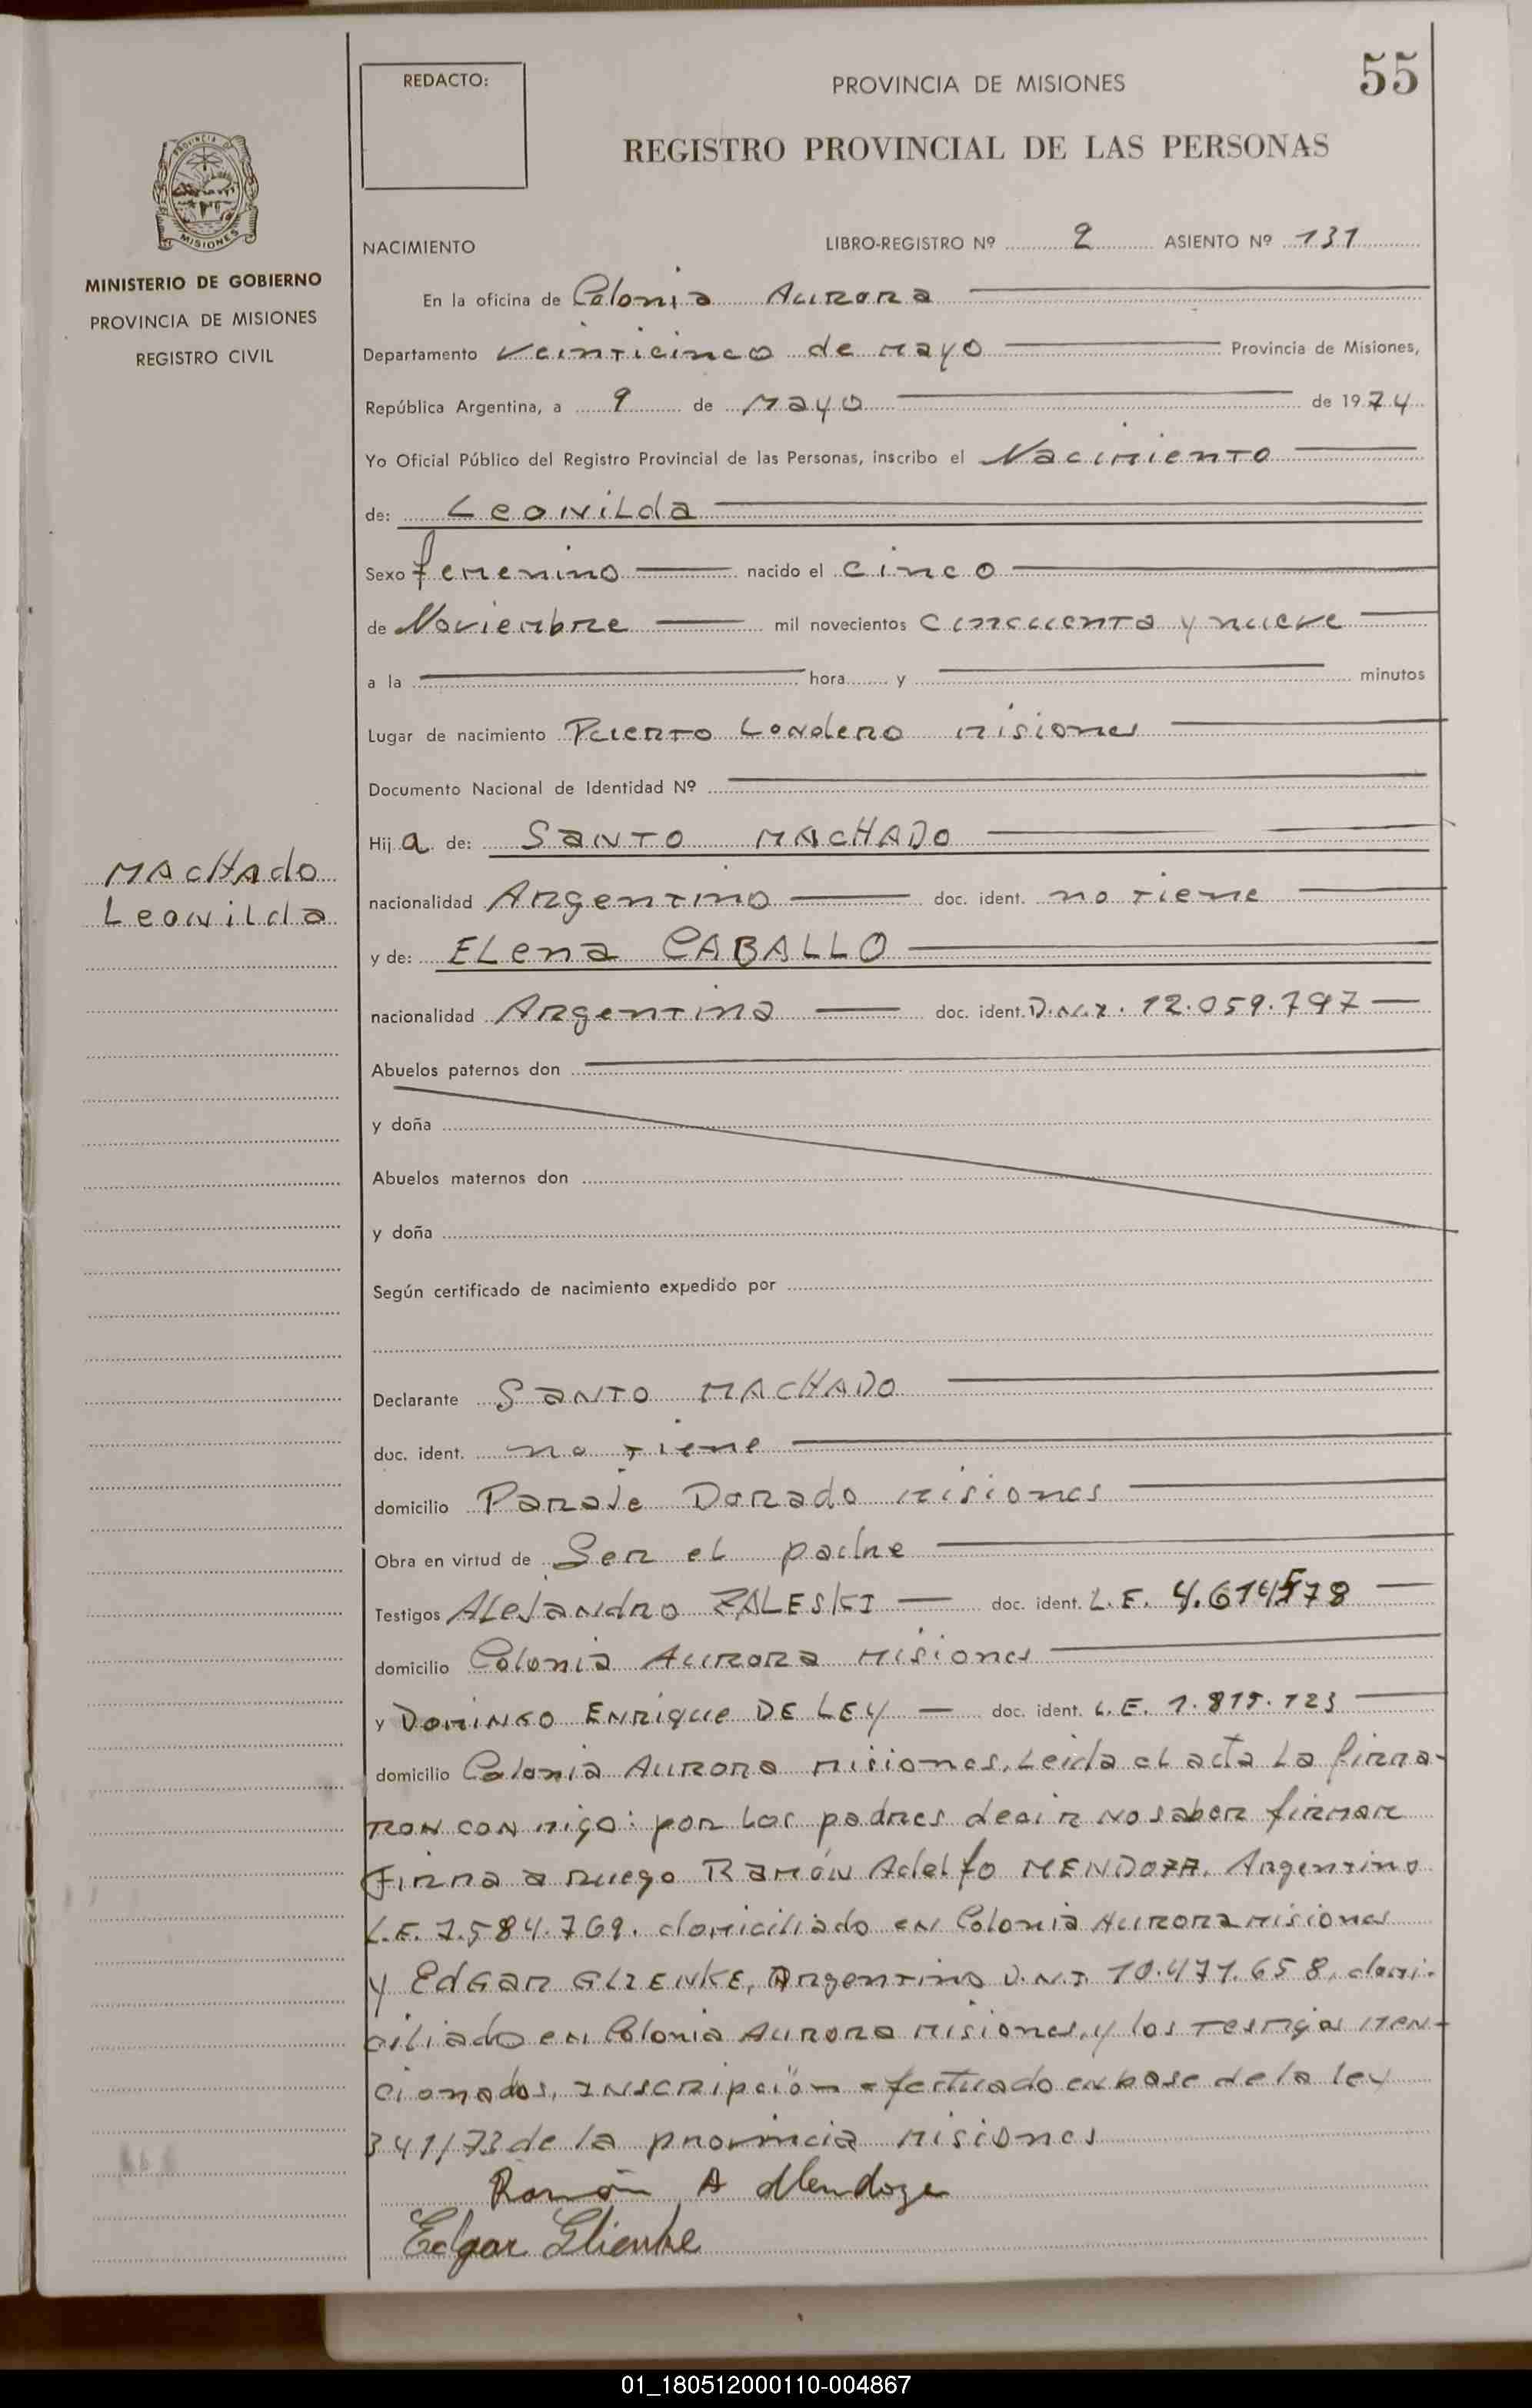 55
REDACTO:
PROVINCIA DE MISIONES
REGISTRO PROVINCIAL DE LAS PERSONAS
PROVINCIA DE
MISIONES
MINISTERIO DE GOBIERNO
PROVINCIA DE MISIONES
REGISTRO CIVIL
NACIMIENTO LIBRO-REGISTRO Nº 2 ASIENTO Nº 131
En la oficina de Colonia Aurora
Departamento Veinticinco de Mayo Provincia de Misiones,
República Argentina, a 9 de Mayo de 1974
Yo Oficial Público del Registro Provincial de las Personas, inscribo el Nacimiento
de: Leonilda
Sexo femenino nacido el cinco
de Noviembre mil novecientos cincuenta y nueve
a la hora y minutos
Lugar de nacimiento Puerto Londero Misiones
Documento Nacional de Identidad Nº
Hija de: Santo MACHADO
MACHAdo
Leonilda
nacionalidad Argentino doc. ident. no tiene
y de: ELena CABALLO
nacionalidad Argentina doc. ident. D.N.I. 12.059.797
Abuelos paternos don
y doña
Abuelos maternos don
y doña
Según certificado de nacimiento expedido por
Declarante Santo MACHADO
doc. ident. no tiene
domicilio Paraje Dorado Misiones
Obra en virtud de Ser el padre
Testigos Alejandro ZALESKI doc. ident. L.E. 4.614578
domicilio Colonia Aurora Misiones
y Domingo Enrique DE LEY doc. ident. L.E. 1.815.123
domicilio Colonia Aurora Misiones. Leida el acta la firma-
ron conmigo: por los padres decir no saber firmar
Firma a ruego Ramón Adelfo MENDOZA. Argentino
L.E. 7.584.769. domiciliado en Colonia Aurora Misiones
y Edgar GLIENKE, Argentino D.N.I. 10.471.658, domi-
ciliado en Colonia Aurora Misiones, y los testigos men-
cionados, Inscripción efectuado en base de la ley
341/73 de la provincia Misiones
Ramón A Mendoza
Edgar Glienke
01_180512000110-004867